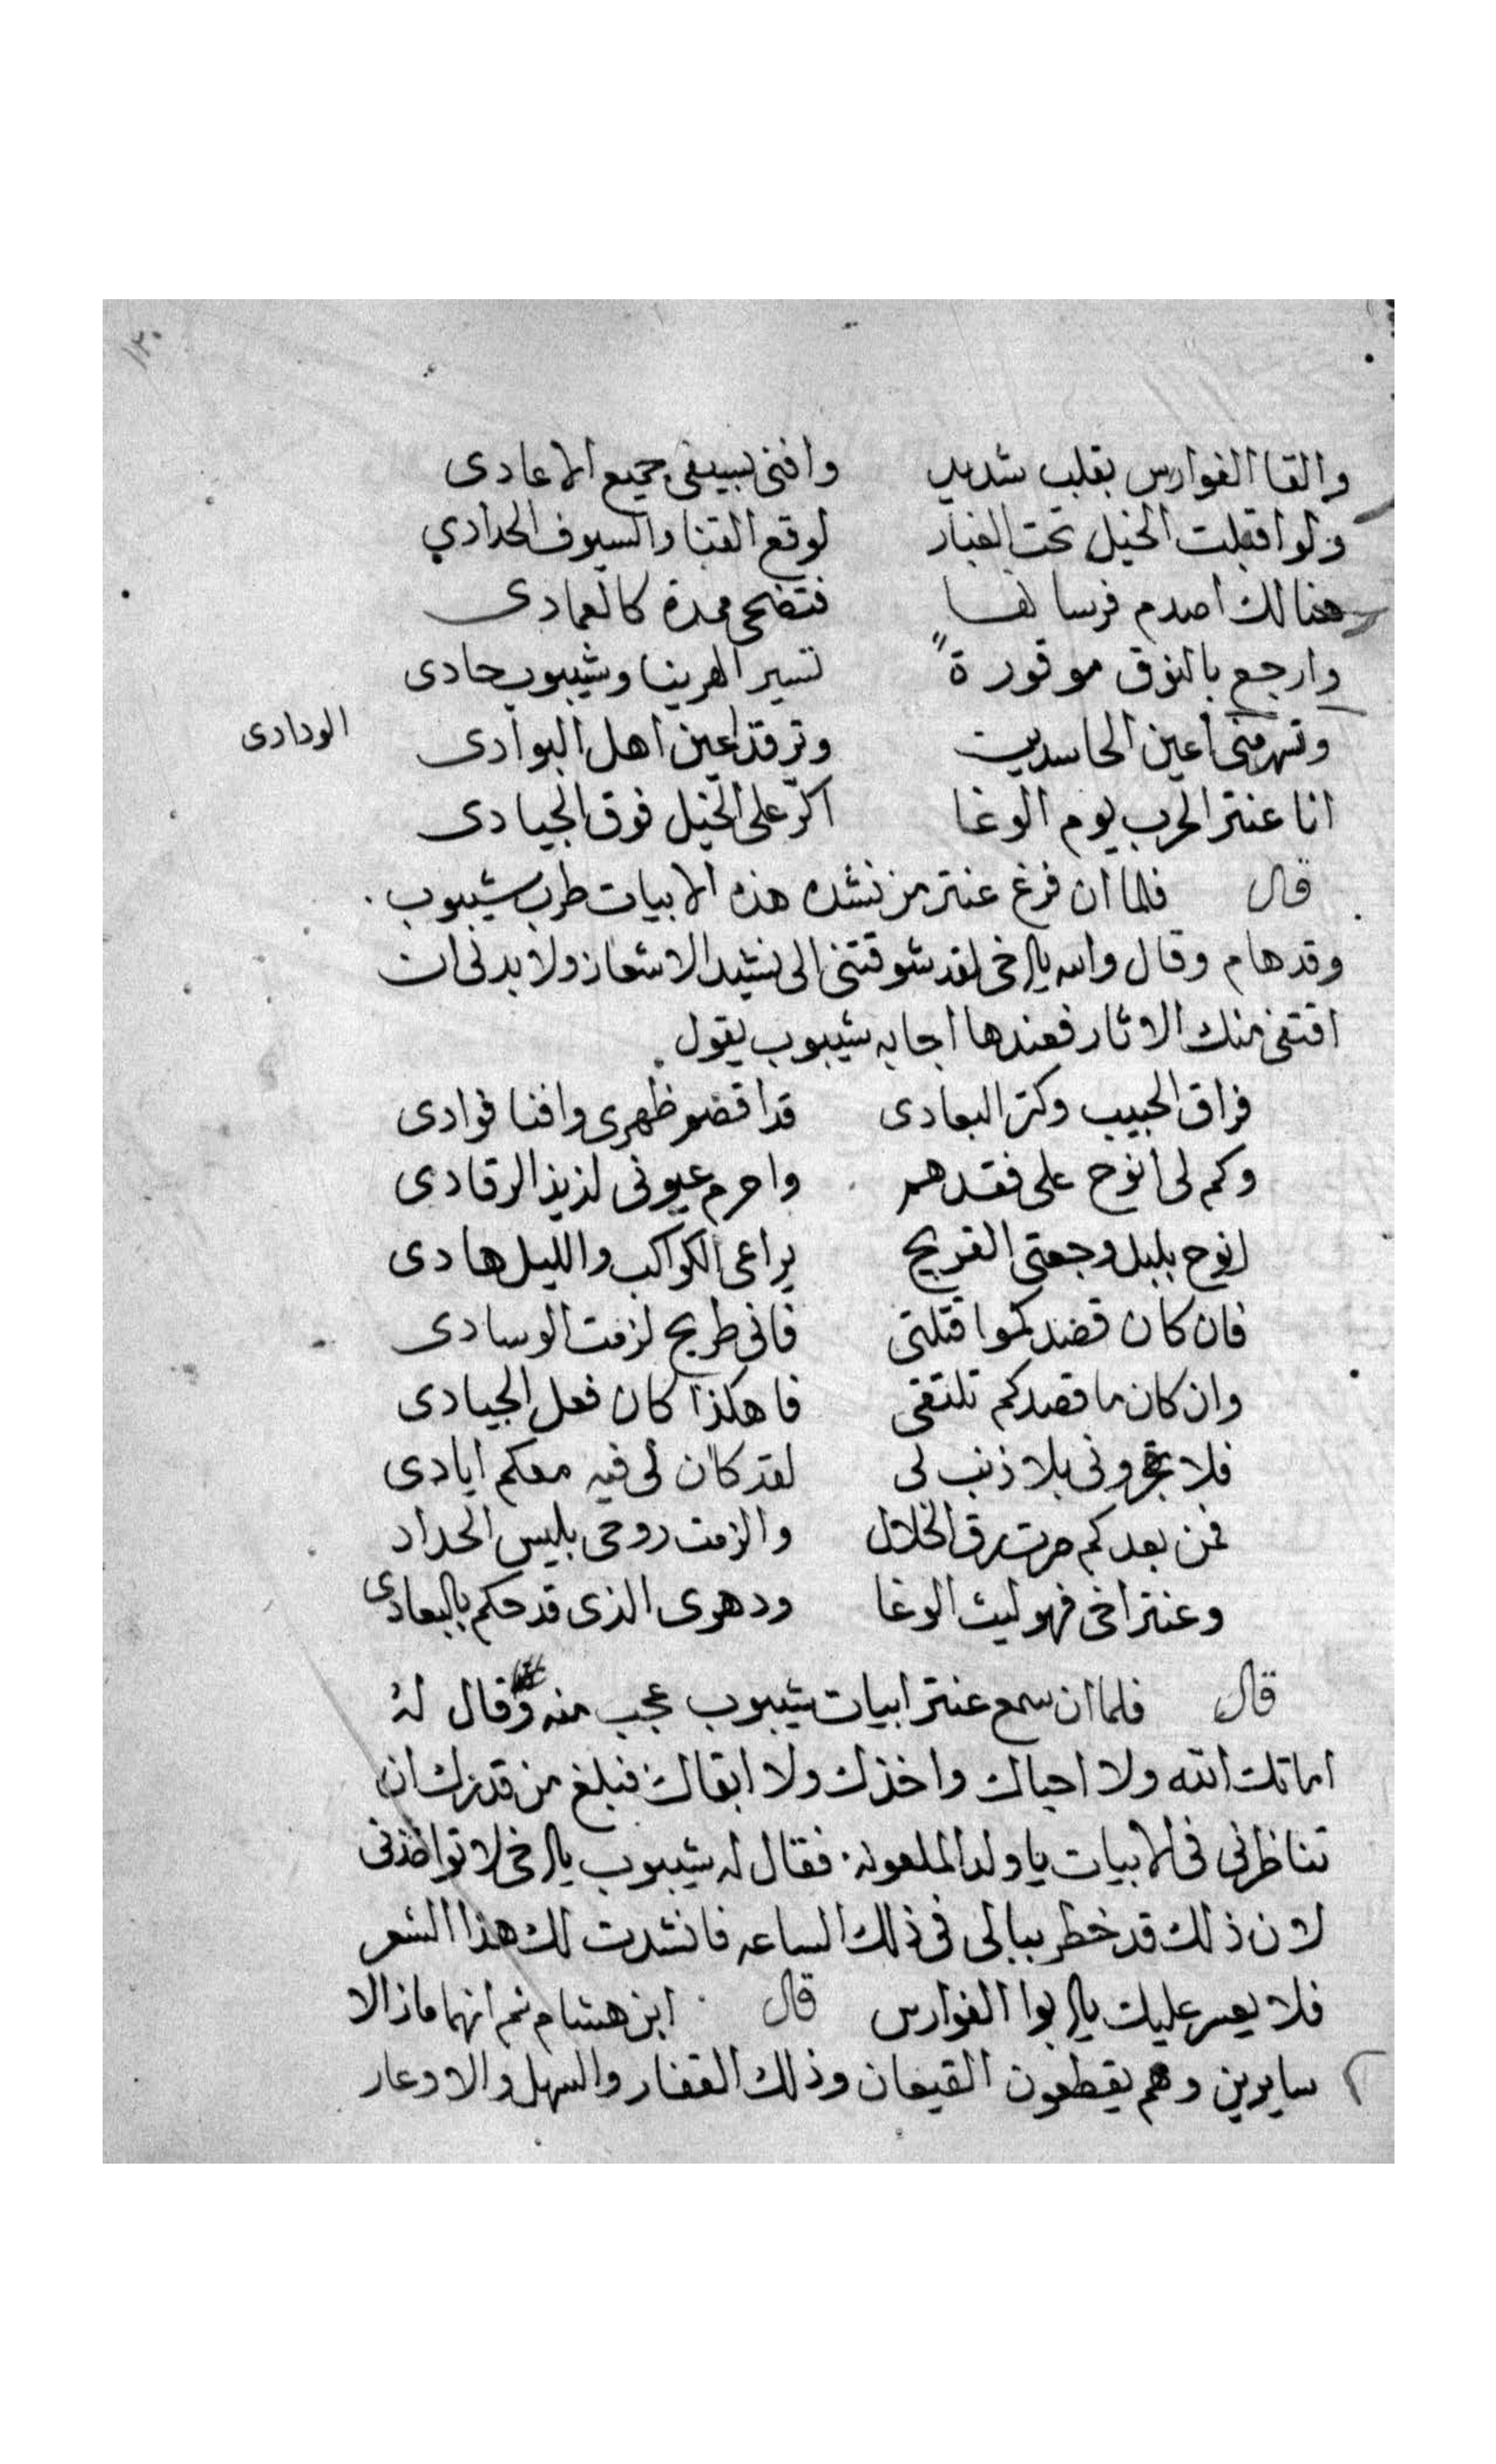 ١٣٠
والقا الفوارس بقلب شديد وافنى بسيفى جميع الاعادى
ولو اقبلت الخيل تحت الغبار لوقع القنا والسيوف الحدادي
هنالك اصدم فرسانها فتضحى ممددة كالعمادى
وارجع بالنوق موقورةً تسير الهوينا وشيبوب حادى
وتسهر منى اعين الحاسدين وترقد اعين اهل البوادى
الودادى
انا عنتر الحرب يوم الوغا اكرّ على الخيل فوق الجيادى
قال فلما ان فرغ عنتر من نشده هذه الابيات طرب شيبوب
وقد هام وقال والله يااخى لقد شوقتنى الى نشيد الاشعار ولا بد لى ان
اقتفى منك الاثار فعندها اجابه شيبوب يقول
فراق الحبيب وكثر البعادى قد اقضم ظهرى وافنا فوادى
وكم لى انوح على فقدهم واحرم عيونى لذيذ الرقادى
انوح بليل وجفنى القريح يراعى الكواكب والليل هادى
فان كان قصدكموا قتلتى فانى طريح لزمت الوسادى
وان كان ما قصدكم نلتقى فا هكذا كان فعل الجيادى
فلا تهجرونى بلا ذنب لى لقد كان لى فيه معكم ايادى
فمن بعدكم صرت رق الخلال والزمت روحى بلبس الحداد
وعنتر اخى فهو ليث الوغا ودهرى الذى قد حكم بالبعادى
قال فلما ان سمع عنتر ابيات شيبوب عجب منه وقال له
اماتك الله ولا احياك واخذك ولا ابقاك فبلغ من قدرك ان
تناظرنى فى الابيات يا ولد الملعونه فقال له شيبوب يااخى لا تواخذنى
لان ذلك قد خطر ببالى فى ذلك الساعه فانشدت لك هذا الشعر
فلا يعسر عليك ياابوا الفوارس قال ابن هشام ثم انهما مازالا
سايرين وهم يقطعون القيعان وذلك القفار والسهل والاوعار